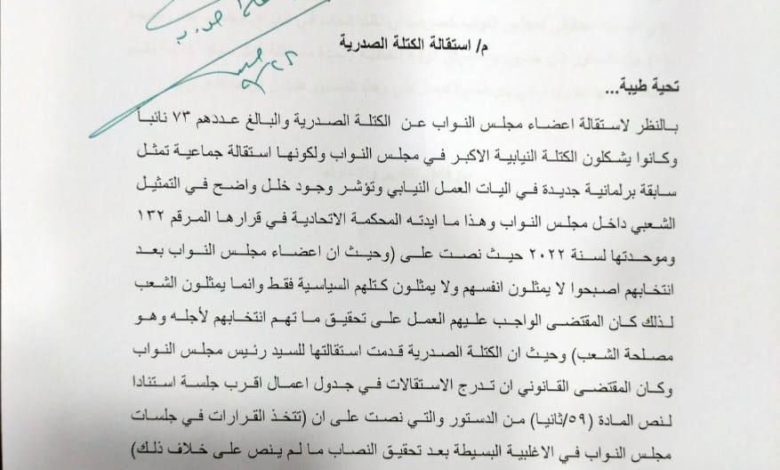 م/ استقالة الكتلة الصدرية
تحية طيبة...
بالنظر لاستقالة اعضاء مجلس النواب عن الكتلة الصدرية والبالغ عددهم ٧٣ نائبا
وكانوا يشكلون الكتلة النيابية الاكبر في مجلس النواب ولكونها استقالة جماعية تمثل
سابقة برلمانية جديدة في اليات العمل النيابي وتؤشر وجود خلل واضح في التمثيل
الشعبي داخل مجلس النواب وهذا ما ايدته المحكمة الاتحادية في قرارها المرقم ١٣٢
وموحدتها لسنة ٢٠٢٢ حيث نصت على (وحيث ان اعضاء مجلس النواب بعد
انتخابهم اصبحوا لا يمثلون انفسهم ولا يمثلون كتلهم السياسية فقط وانما يمثلون الشعب
لذلك كان المقتضى الواجب عليهم العمل على تحقيق ما تهم انتخابهم لأجله وهو
مصلحة الشعب) وحيث ان الكتلة الصدرية قدمت استقالتها للسيد رئيس مجلس النواب
وكان المقتضى القانوني ان تدرج الاستقالات في جدول اعمال اقرب جلسة استنادا
لنص المادة (٥٩/ثانيا) من الدستور والتي نصت على ان (تتخذ القرارات في جلسات
مجلس النواب في الاغلبية البسيطة بعد تحقيق النصاب ما لم ينص على خلاف ذلك)